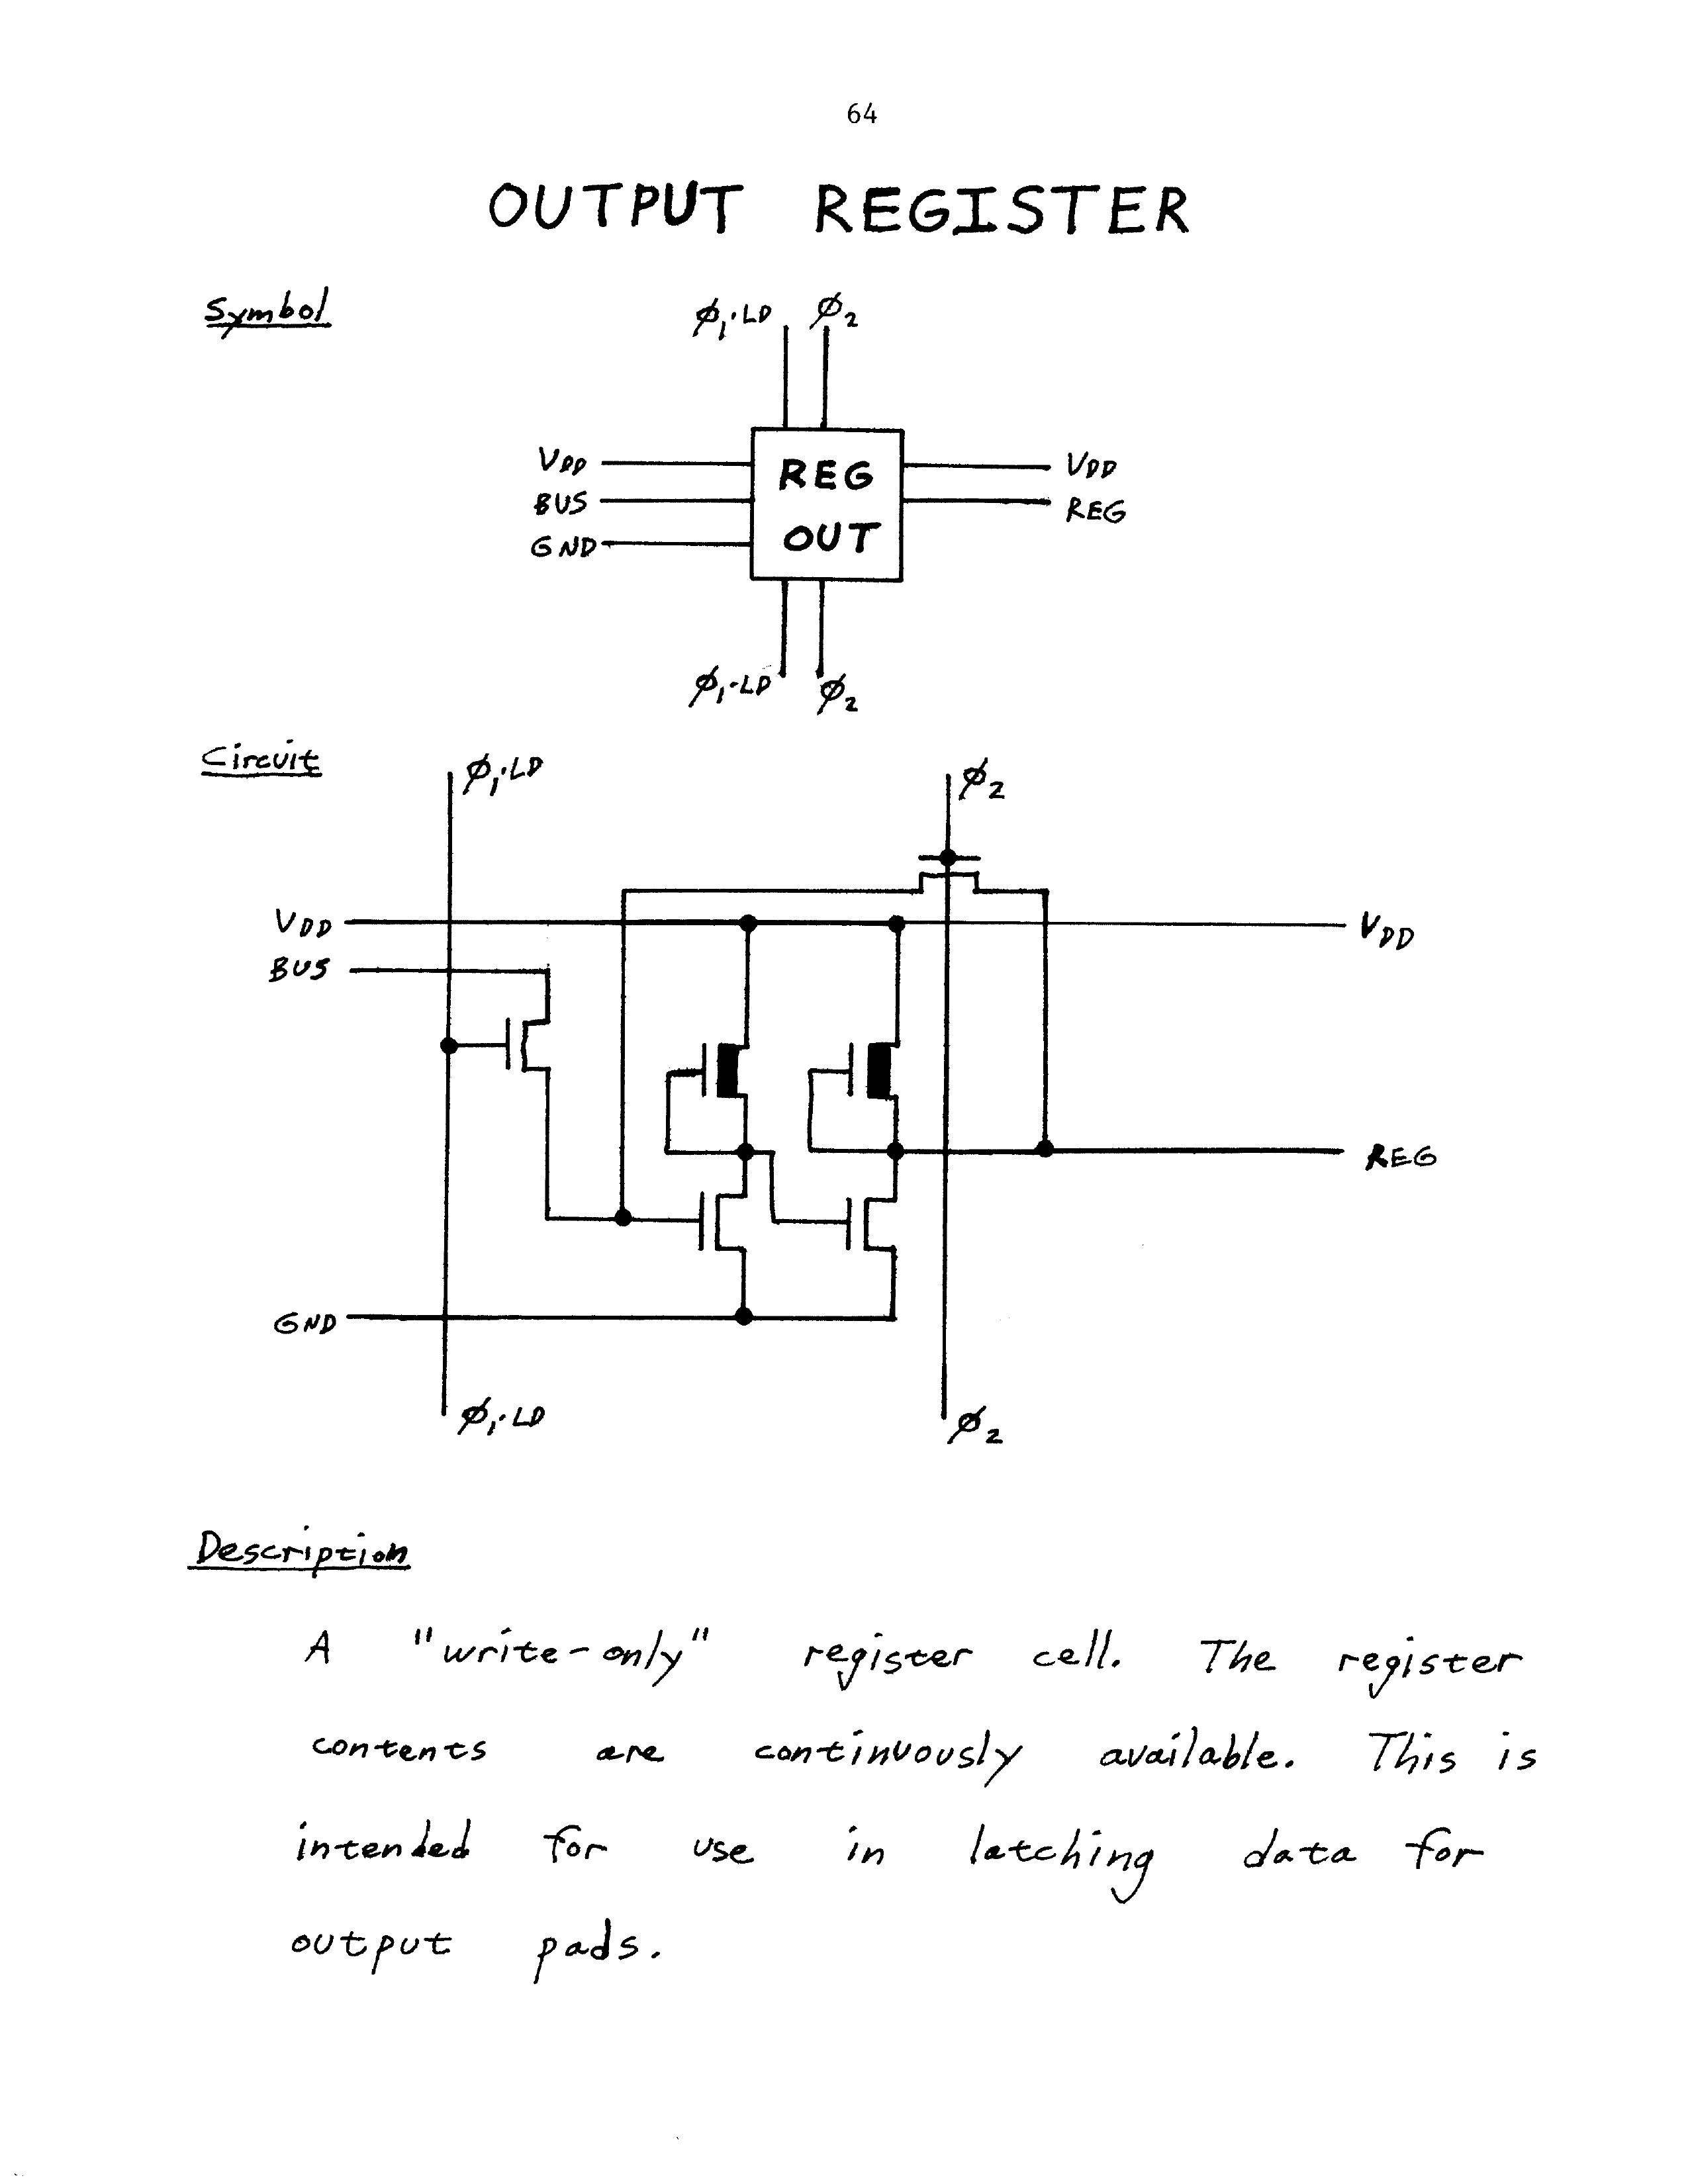 64
OUTPUT REGISTER
Symbol
ϕ₁·LD ϕ₂
VDD REG VDD
BUS REG
GND OUT
ϕ₁·LD ϕ₂
Circuit
ϕ₁·LD ϕ₂
VDD VDD
BUS
REG
GND
ϕ₁·LD ϕ₂
Description
A "write-only" register cell. The register
contents are continuously available. This is
intended for use in latching data for
output pads.